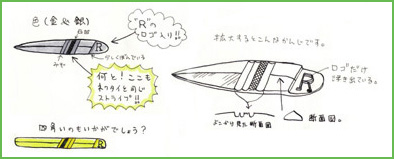 色(金 or 銀)
"R"の
ロゴ入り!!
R
少しくぼんでいる
みぞ
何と!ここも
ネクタイと同じ
ストライプ!!
四角いのもいかがでしょう?
拡大するとこんなかんじです。
ロゴだけ
浮き出ている。
R
よこから見た断面図
断面図。